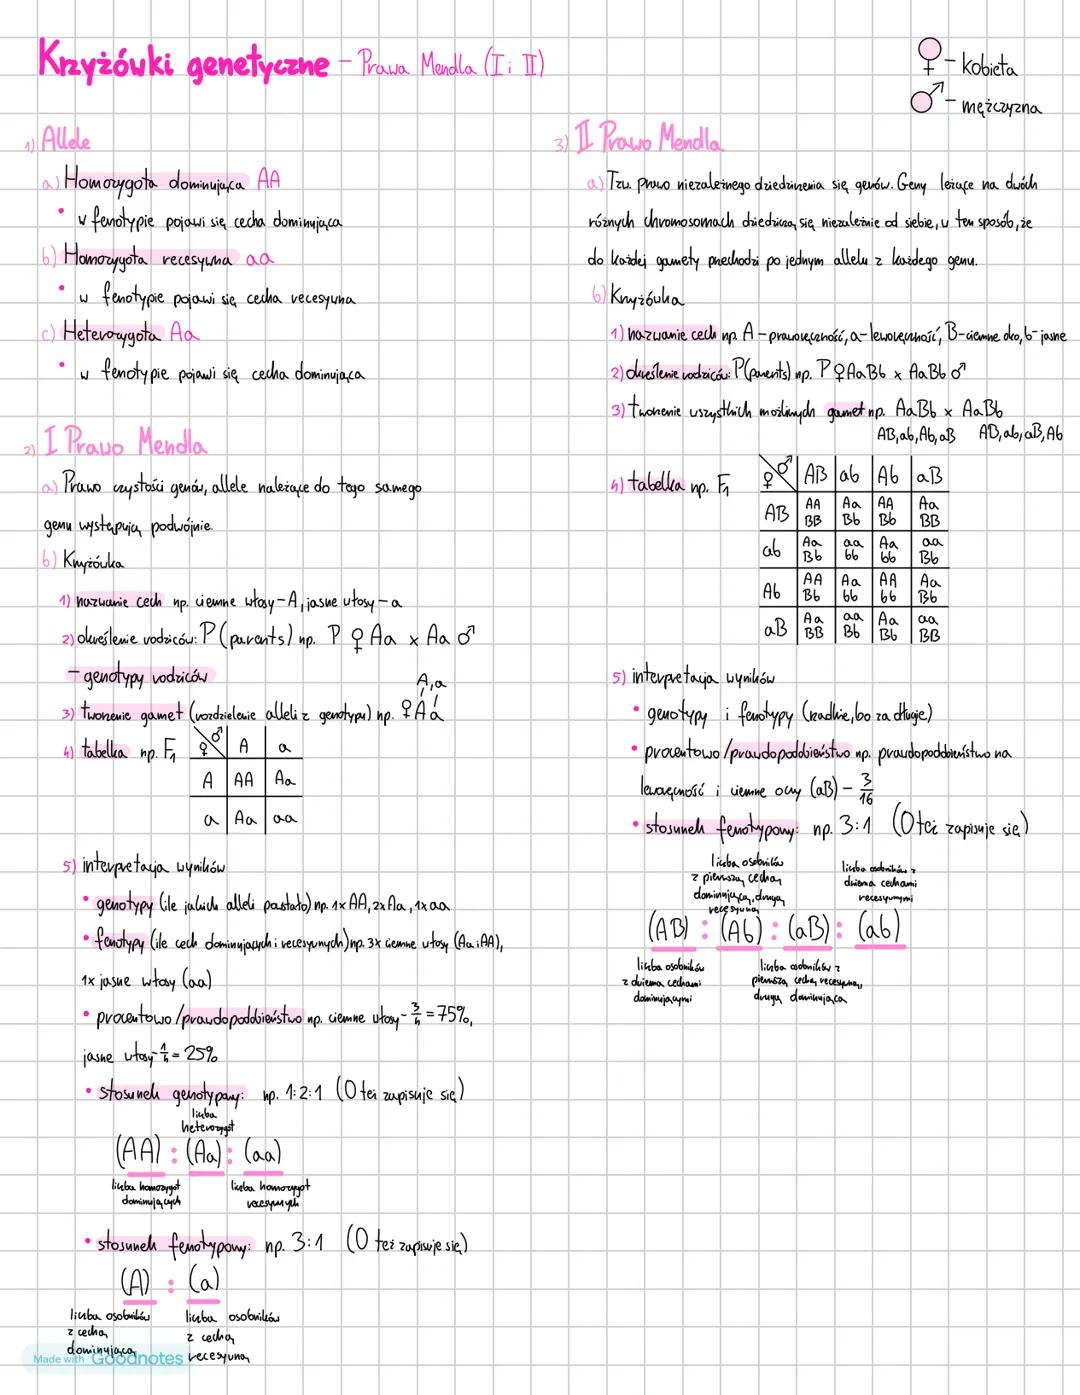 Krzyżówki genetyczne - Prawa Mendla (I i II)
♀ - kobieta
♂ - mężczyzna
1) Allele
a) Homozygota dominująca AA
• w fenotypie pojawi się cecha dominująca
b) Homozygota recesywna aa
• w fenotypie pojawi się cecha recesywna
c) Heterozygota Aa
• w fenotypie pojawi się cecha dominująca
2) I Prawo Mendla
a) Prawo czystości genów, allele należące do tego samego
genu występują podwójnie.
b) Krzyżówka
1) nazwanie cech np. ciemne włosy - A, jasne włosy - a
2) określenie rodziców: P (parents) np. P ♀ Aa x Aa ♂
- genotypy rodziców
A, a
3) tworzenie gamet (rozdzielenie alleli z genotypu) np. ♀ A a
4) tabelka np. F₁
♀ ♂ A a
A AA Aa
a Aa aa
5) interpretacja wyników
• genotypy (ile jakich alleli powstało) np. 1x AA, 2x Aa, 1x aa
• fenotypy (ile cech dominujących i recesywnych) np. 3x ciemne włosy (Aa i AA),
1x jasne włosy (aa)
• procentowo / prawdopodobieństwo np. ciemne włosy - 3/4 = 75%,
jasne włosy - 1/4 = 25%
• stosunek genotypowy: np. 1:2:1 (0 też zapisuje się)
liczba
heterozygot
(AA) : (Aa) : (aa)
liczba homozygot
dominujących
liczba homozygot
recesywnych
• stosunek fenotypowy: np. 3:1 (0 też zapisuje się)
(A) : (a)
liczba osobników
z cechą
dominującą
liczba osobników
z cechą
recesywną
Made with Goodnotes
3) II Prawo Mendla
a) Tzw. prawo niezależnego dziedziczenia się genów. Geny leżące na dwóch
różnych chromosomach dziedziczą się niezależnie od siebie, w ten sposób, że
do każdej gamety przechodzi po jednym allelu z każdego genu.
b) Krzyżówka
1) nazwanie cech np. A - praworęczność, a - leworęczność, B - ciemne oko, b - jasne
2) określenie rodziców: P (parents) np. P ♀ AaBb x AaBb ♂
3) tworzenie wszystkich możliwych gamet np. AaBb x AaBb
AB, ab, Ab, aB AB, ab, aB, Ab
4) tabelka np. F₁
♀ ♂ AB ab Ab aB
AB AA Aa AA Aa
BB Bb Bb BB
ab Aa aa Aa aa
Bb bb bb Bb
Ab AA Aa AA Aa
Bb bb bb Bb
aB Aa aa Aa aa
BB Bb Bb BB
5) interpretacja wyników
• genotypy i fenotypy (rzadkie, bo za długie)
• procentowo / prawdopodobieństwo np. prawdopodobieństwo na
leworęczność i ciemne oczy (aB) - 3/16
• stosunek fenotypowy: np. 3:1 (0 też zapisuje się)
liczba osobników
z pierwszą cechą
dominującą, drugą
recesywną
liczba osobników z
dwiema cechami
recesywnymi
(AB) : (Ab) : (aB) : (ab)
liczba osobników
z dwiema cechami
dominującymi
liczba osobników z
pierwszą cechą recesywną,
drugą dominującą